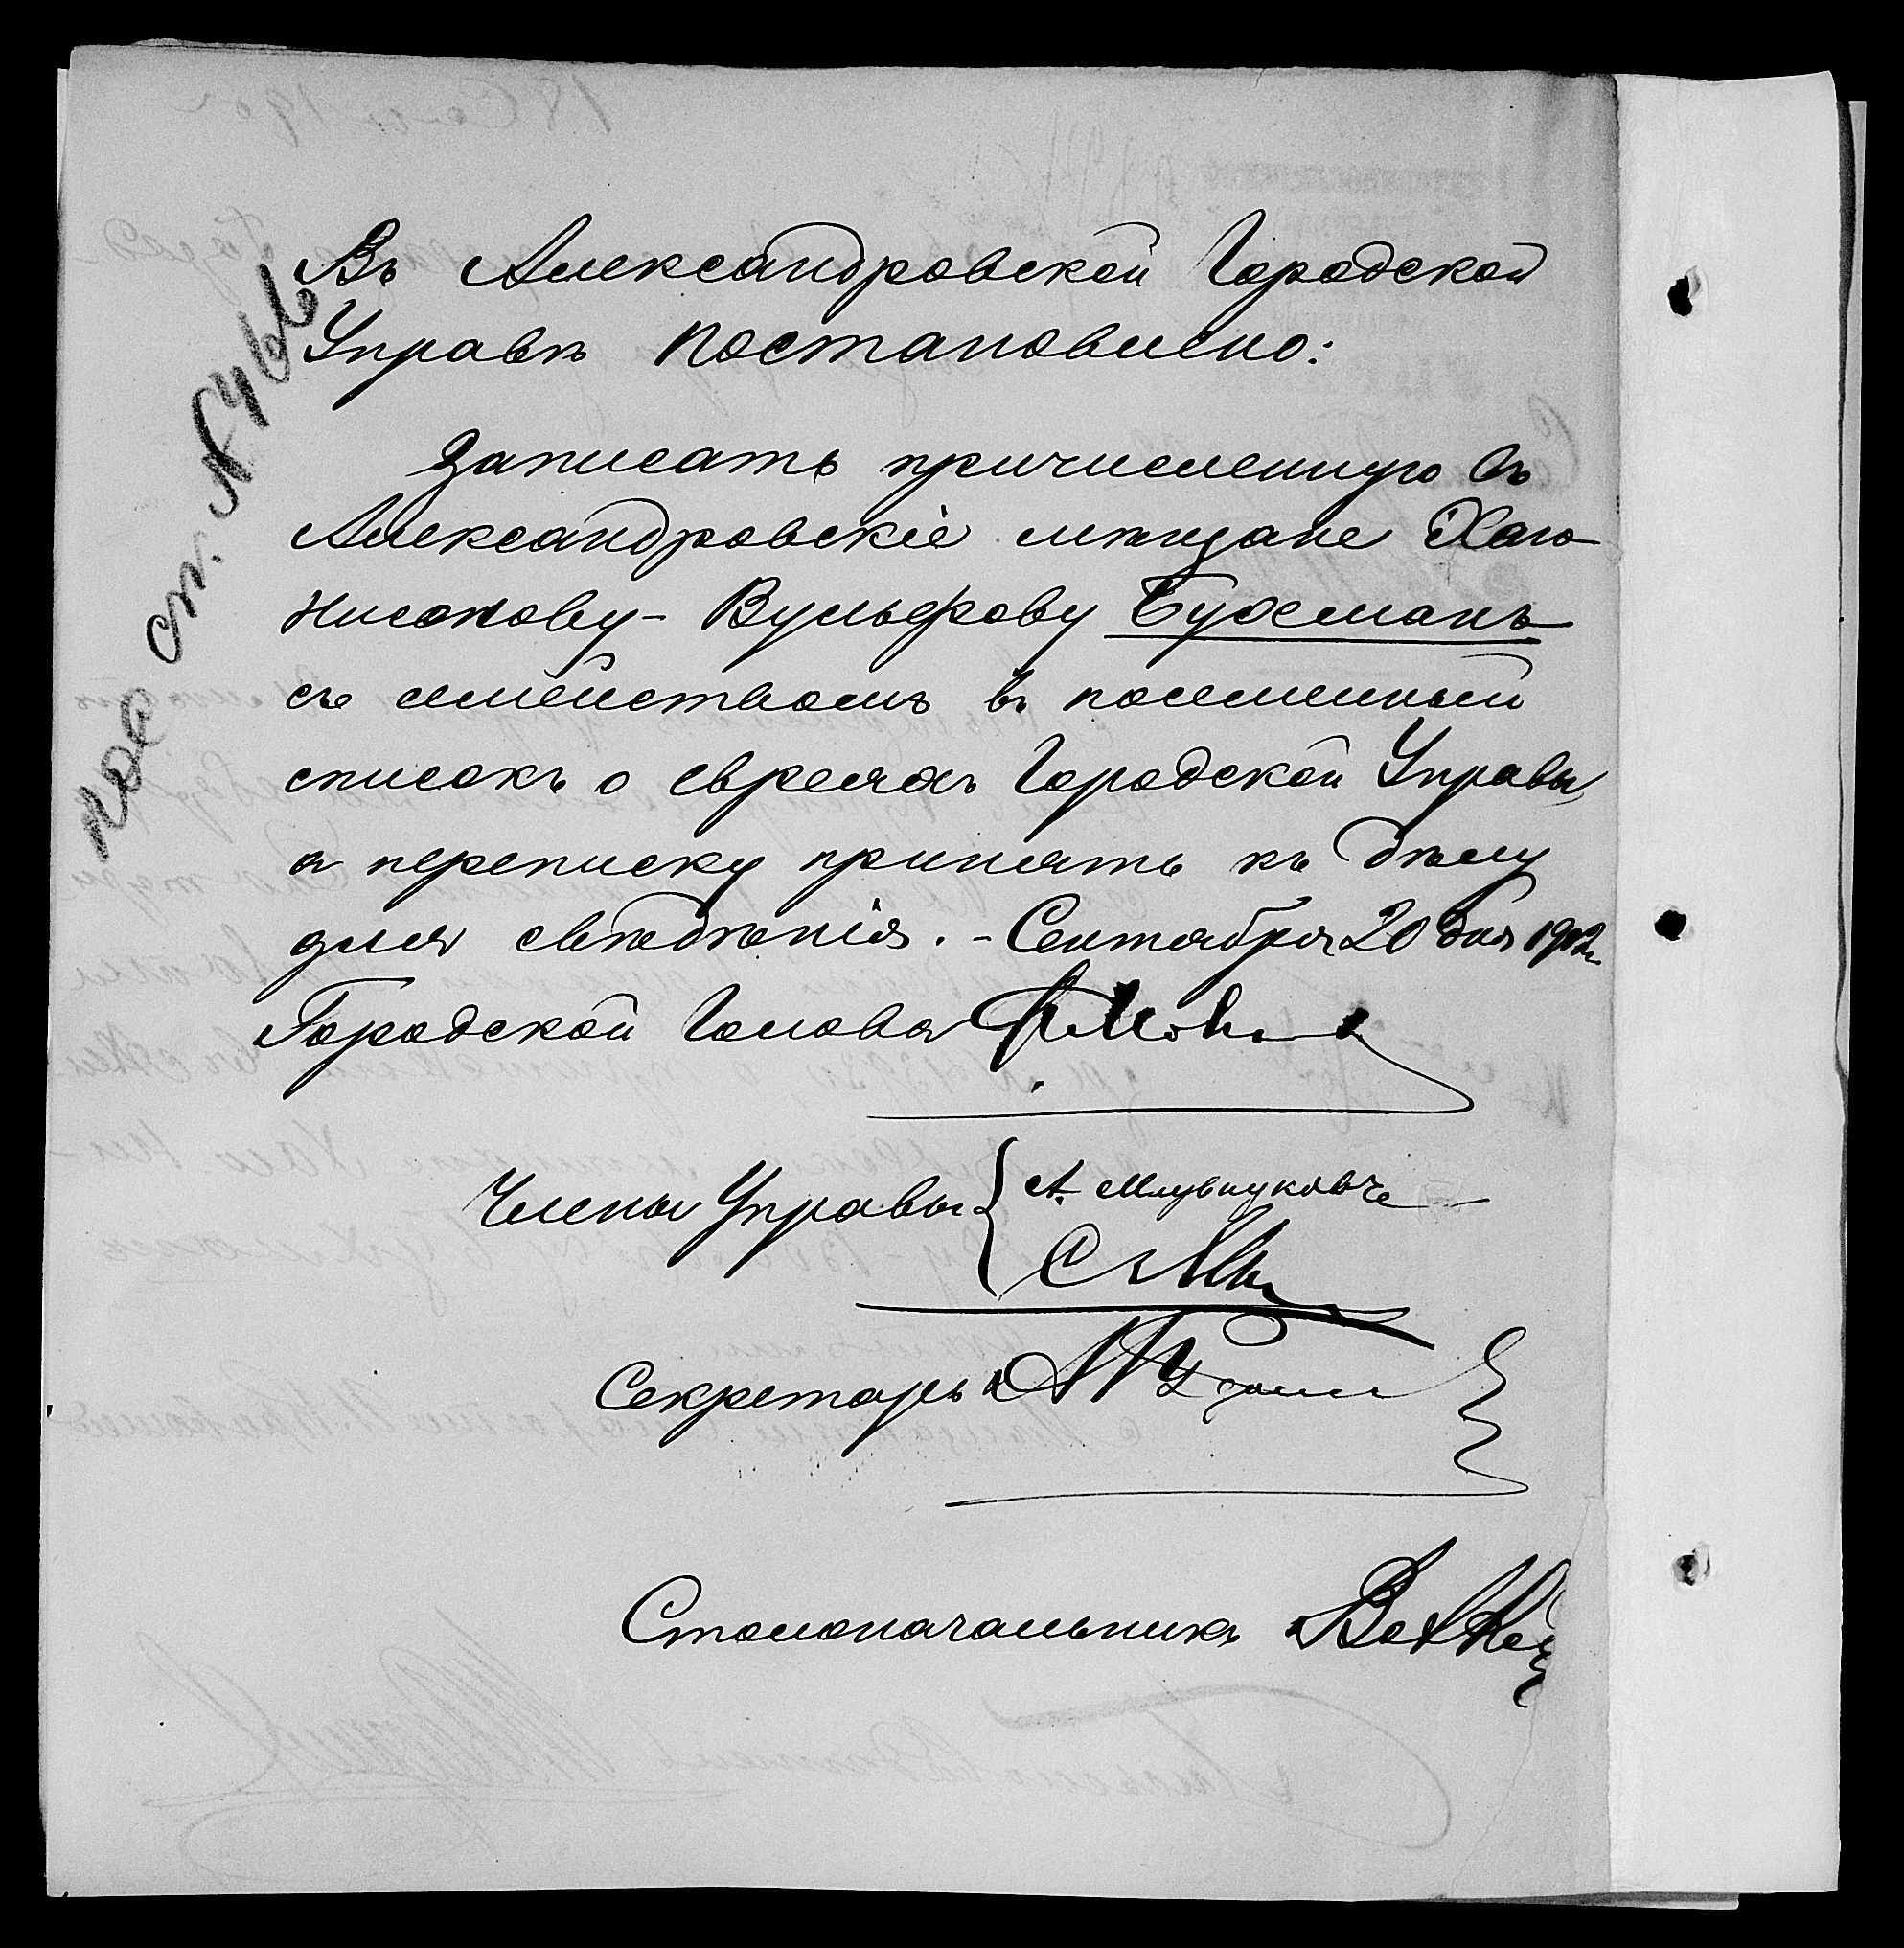 Въ Александровской Городской
Управѣ постановлено:
Записать причисленную въ
Александровскіе мѣщане Хаю
Нисонову - Вульфову Бухманъ
съ семействомъ въ посемейный
списокъ о евреяхъ Городской Управы,
а переписку принять къ дѣлу
для свѣдѣнія. - Сентября 20 дня 1902 г.
Городской Голова
Члены Управы { А.
Секретарь
Столоначальникъ
пос ст. №